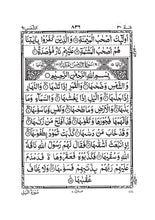 ٨٣٦
اُولٰٓئِكَ اَصْحٰبُ الْمَيْمَنَةِ ۝ وَالَّذِيْنَ كَفَرُوْا بِاٰيٰتِنَا
هُمْ اَصْحٰبُ الْمَشْـَٔمَةِ ۝ عَلَيْهِمْ نَارٌ مُّؤْصَدَةٌ ۝
بِسْمِ اللّٰهِ الرَّحْمٰنِ الرَّحِيْمِ
وَالشَّمْسِ وَضُحٰىهَا ۝ وَالْقَمَرِ اِذَا تَلٰىهَا ۝ وَالنَّهَارِ اِذَا
جَلّٰىهَا ۝ وَالَّيْلِ اِذَا يَغْشٰىهَا ۝ وَالسَّمَآءِ وَمَا بَنٰىهَا ۝ وَ
الْاَرْضِ وَمَا طَحٰىهَا ۝ وَنَفْسٍ وَّمَا سَوّٰىهَا ۝ فَاَلْهَمَهَا
فُجُوْرَهَا وَتَقْوٰىهَا ۝ قَدْ اَفْلَحَ مَنْ زَكّٰىهَا ۝
وَقَدْ خَابَ مَنْ دَسّٰىهَا ۝ كَذَّبَتْ ثَمُوْدُ بِطَغْوٰىهَآ ۝
اِذِ انْۢبَعَثَ اَشْقٰىهَا ۝ فَقَالَ لَهُمْ رَسُوْلُ اللّٰهِ نَاقَةَ اللّٰهِ
وَسُقْيٰهَا ۝ فَكَذَّبُوْهُ فَعَقَرُوْهَا فَدَمْدَمَ عَلَيْهِمْ
رَبُّهُمْ بِذَنْۢبِهِمْ فَسَوّٰىهَا ۝ وَلَا يَخَافُ
عُقْبٰهَا ۝